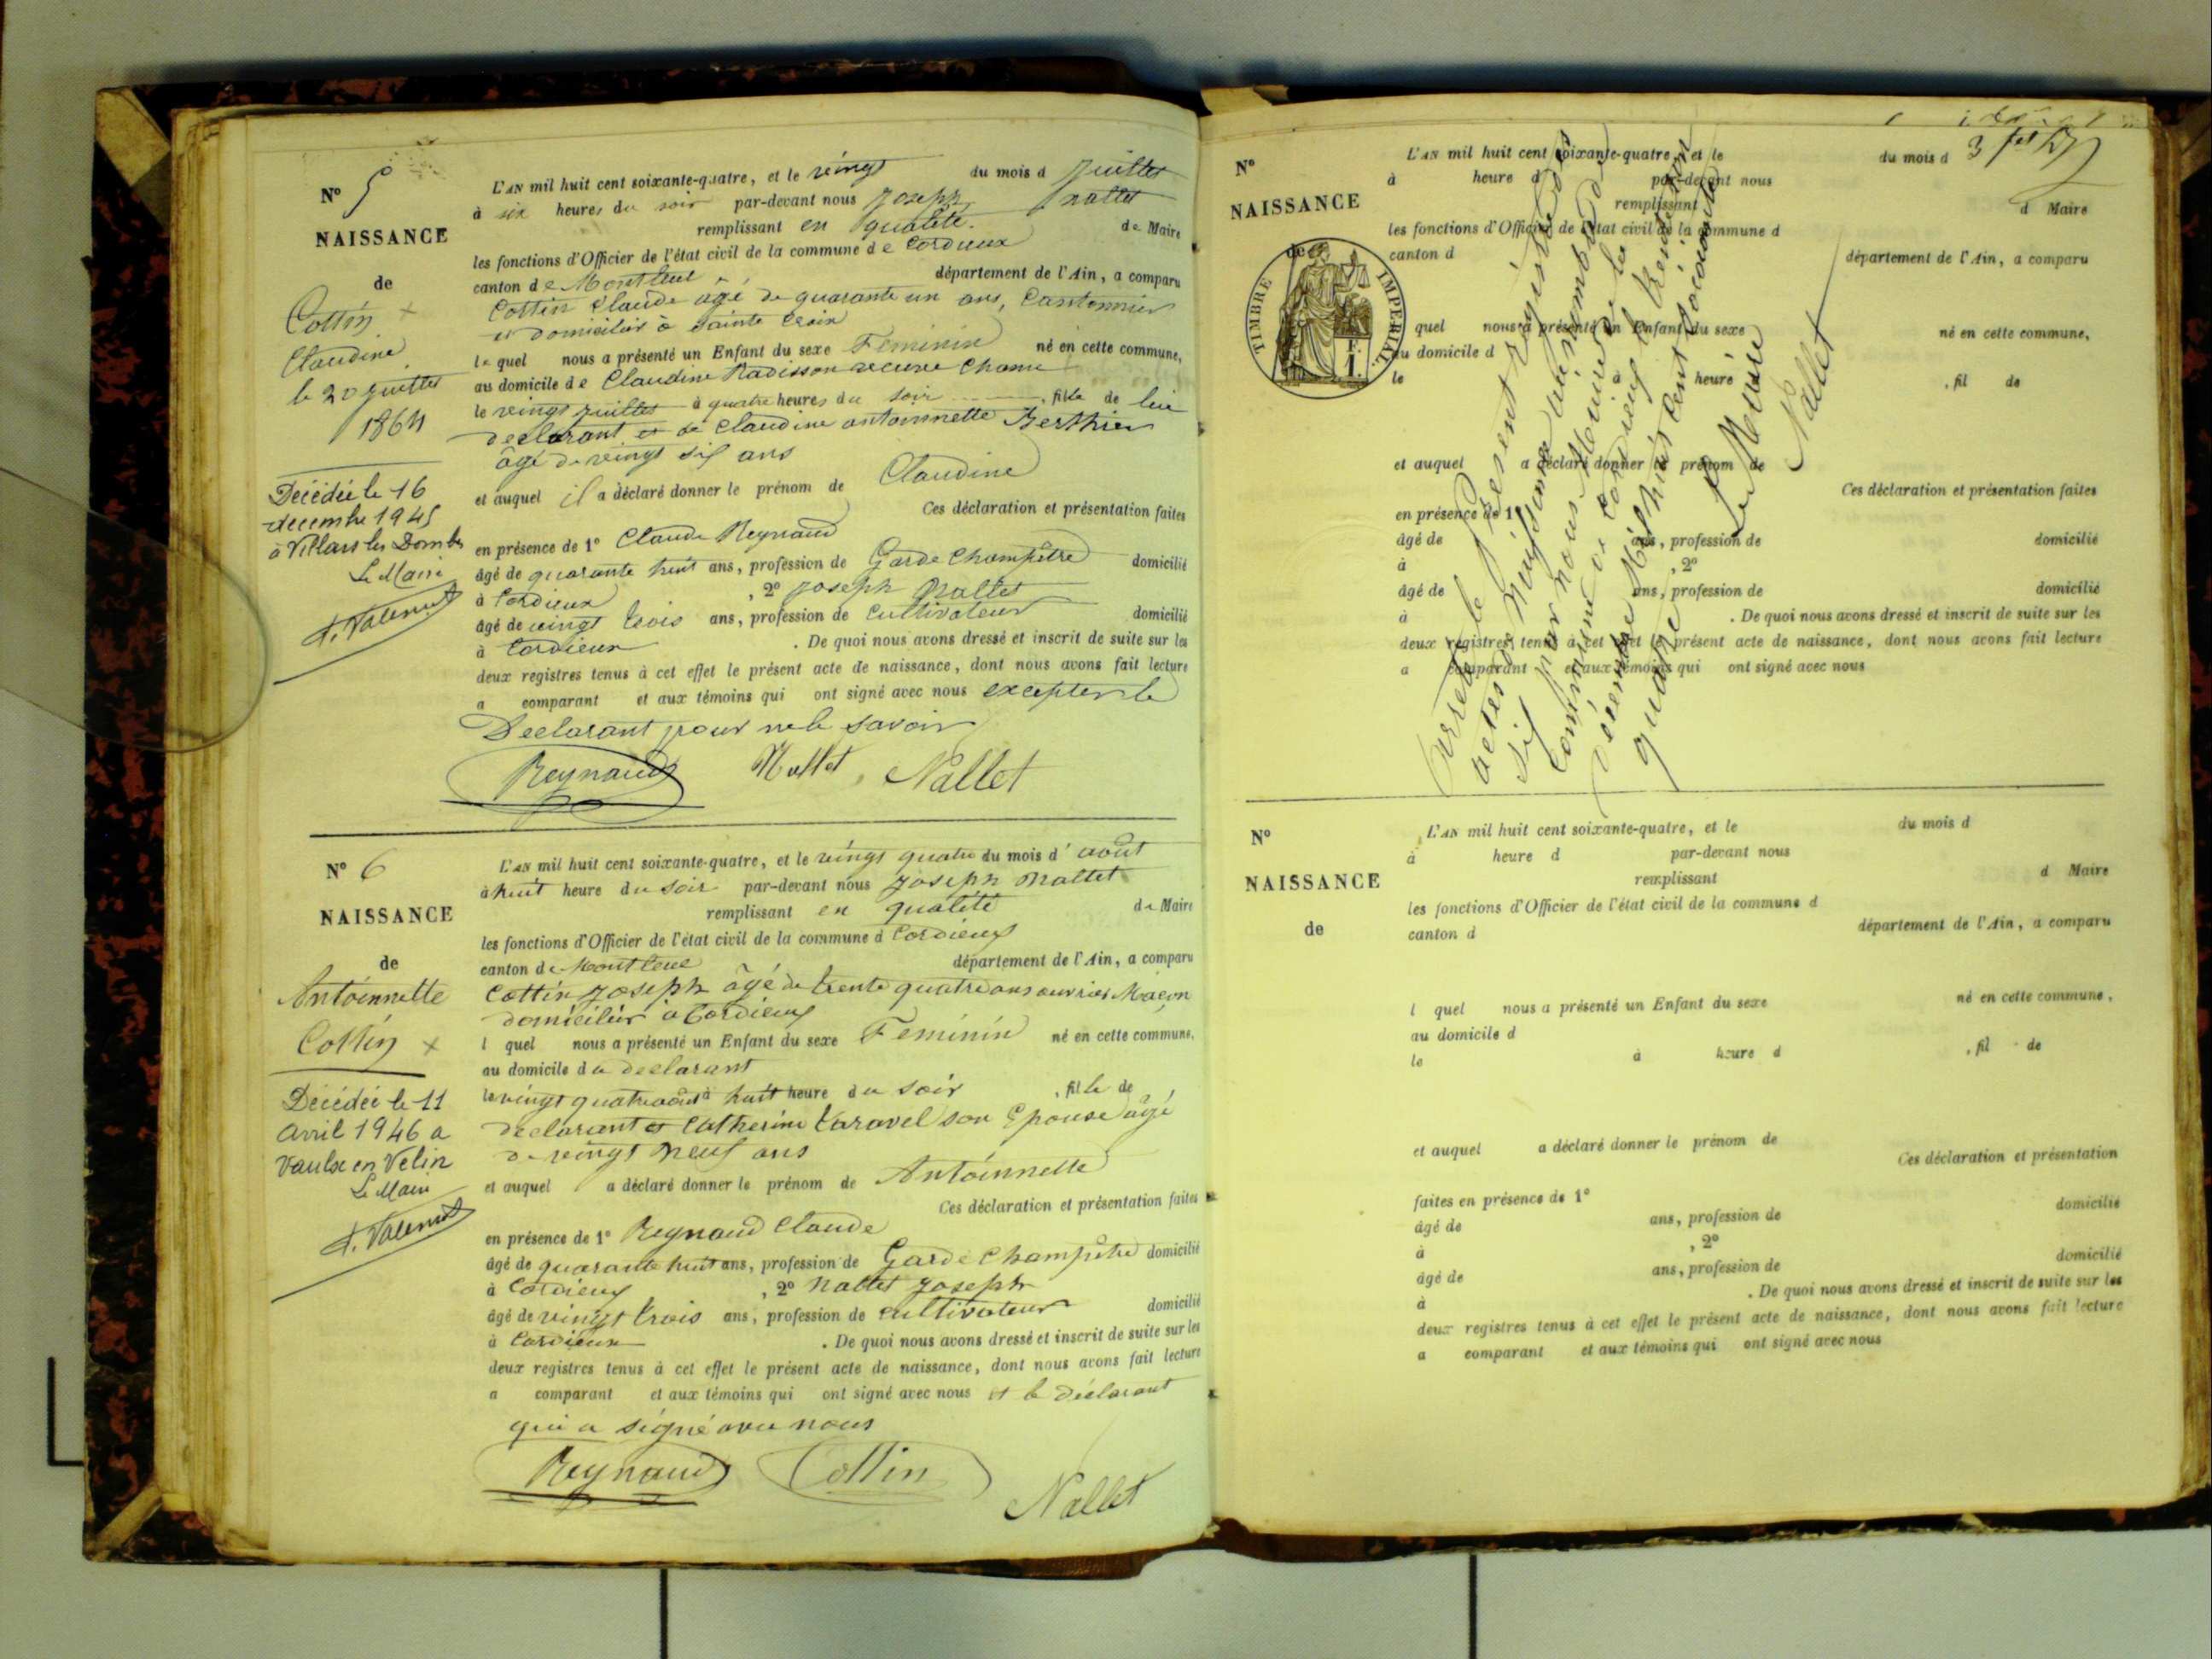 N° 5
NAISSANCE
de
Cottin
Claudine
le 20 juillet
1864
Décédée le 16
decembre 1945
à Villars les Dombes
Le Maire
L'AN mil huit cent soixante-quatre, et le vingt du mois d juillet
à six heures du soir par-devant nous Joseph Nallet
remplissant en qualité de Maire
les fonctions d'Officier de l'état civil de la commune de Cordieux
canton de Montluel département de l'Ain, a comparu
Cottin Claude âgé de quarante un ans, Cantonnier
et domicilié à Sainte Croix
lequel nous a présenté un Enfant du sexe Feminin né en cette commune,
au domicile de Claudine Radisson veuve
le vingt juillet à quatre heures du soir, fille de lui
declarant et de Claudine antoinnette Berthier
âgé de vingt six ans
et auquel il a déclaré donner le prénom de Claudine
Ces déclaration et présentation faites
en présence de 1° Claude Reynaud
âgé de quarante huit ans, profession de Garde Champêtre domicilié
à Cordieux , 2° Joseph Nallet
âgé de vingt trois ans, profession de Cultivateur domicilié
à Cordieux . De quoi nous avons dressé et inscrit de suite sur les
deux registres tenus à cet effet le présent acte de naissance, dont nous avons fait lecture
a comparant et aux témoins qui ont signé avec nous excepter le
Declarant pour ne le savoir
Reynaud Nallet Nallet
N° 6
NAISSANCE
de
Antoinnette
Cottin
Décédée le 11
avril 1946 a
Vaulx en Velin
Le Maire
L'AN mil huit cent soixante-quatre, et le vingt quatre du mois d'août
à huit heure du soir par-devant nous Joseph Nallet
remplissant en qualité de Maire
les fonctions d'Officier de l'état civil de la commune d Cordieux
canton de Montluel département de l'Ain, a comparu
Cottin Joseph âgé de trente quatre ans ouvrier Maçon
domicilié à Cordieux
l quel nous a présenté un Enfant du sexe Feminin né en cette commune,
au domicile du declarant
le vingt quatre août à huit heure du soir , fille de
declarant et Catherine Caravel son Epouse âgé
de vingt neuf ans
et auquel a déclaré donner le prénom de Antoinnette
Ces déclaration et présentation faites
en présence de 1° Reynaud Claude
âgé de quarante huit ans, profession de Garde Champêtre domicilié
à Cordieux , 2° Nallet Joseph
âgé de vingt trois ans, profession de cultivateur domicilié
à Cordieux . De quoi nous avons dressé et inscrit de suite sur les
deux registres tenus à cet effet le présent acte de naissance, dont nous avons fait lecture
a comparant et aux témoins qui ont signé avec nous et le déclarant
qui a signé avec nous
Reynaud Cottin
Nallet
N°
NAISSANCE
de
TIMBRE IMPERIAL
L'AN mil huit cent soixante-quatre, et le du mois d
à heure d par-devant nous
remplissant d Maire
les fonctions d'Officier de l'état civil de la commune d
canton d département de l'Ain, a comparu
quel nous a présenté un Enfant du sexe né en cette commune,
au domicile d
le à heure , fil de
et auquel a déclaré donner le prénom de
Ces déclaration et présentation faites
en présence de 1°
âgé de ans, profession de domicilié
à , 2°
âgé de ans, profession de domicilié
à . De quoi nous avons dressé et inscrit de suite sur les
deux registres tenus à cet effet le présent acte de naissance, dont nous avons fait lecture
a comparant et aux témoins qui ont signé avec nous
Arreté le présent registre
actes de naissance au nombre de
six par nous Maire de la
commune de Cordieux le trente un
décembre Mil huit cent soixante
quatre Le Maire
Nallet
N°
NAISSANCE
de
L'AN mil huit cent soixante-quatre, et le du mois d
à heure d par-devant nous
remplissant d Maire
les fonctions d'Officier de l'état civil de la commune d
canton d département de l'Ain, a comparu
l quel nous a présenté un Enfant du sexe né en cette commune,
au domicile d
le à heure d , fil de
et auquel a déclaré donner le prénom de
Ces déclaration et présentation
faites en présence de 1°
âgé de ans, profession de domicilié
à , 2°
âgé de ans, profession de domicilié
à . De quoi nous avons dressé et inscrit de suite sur les
deux registres tenus à cet effet le présent acte de naissance, dont nous avons fait lecture
a comparant et aux témoins qui ont signé avec nous